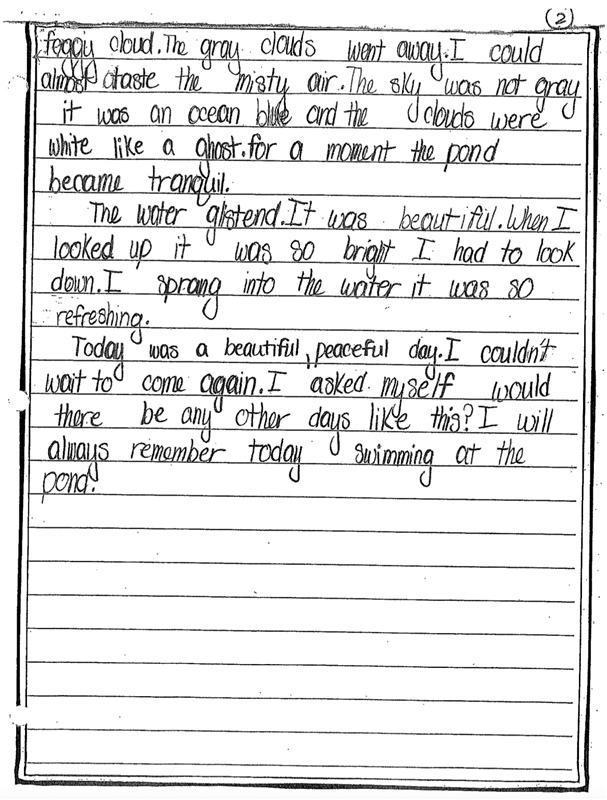 (2)
foggy cloud. The gray clouds went away. I could
almost taste the misty air. The sky was not gray
it was an ocean blue and the clouds were
white like a ghost. for a moment the pond
became tranquil.
The water glistend. It was beautiful. When I
looked up it was so bright I had to look
down. I sprang into the water it was so
refreshing.
Today was a beautiful, peaceful day. I couldn't
wait to come again. I asked myself would
there be any other days like this? I will
always remember today swimming at the
pond.